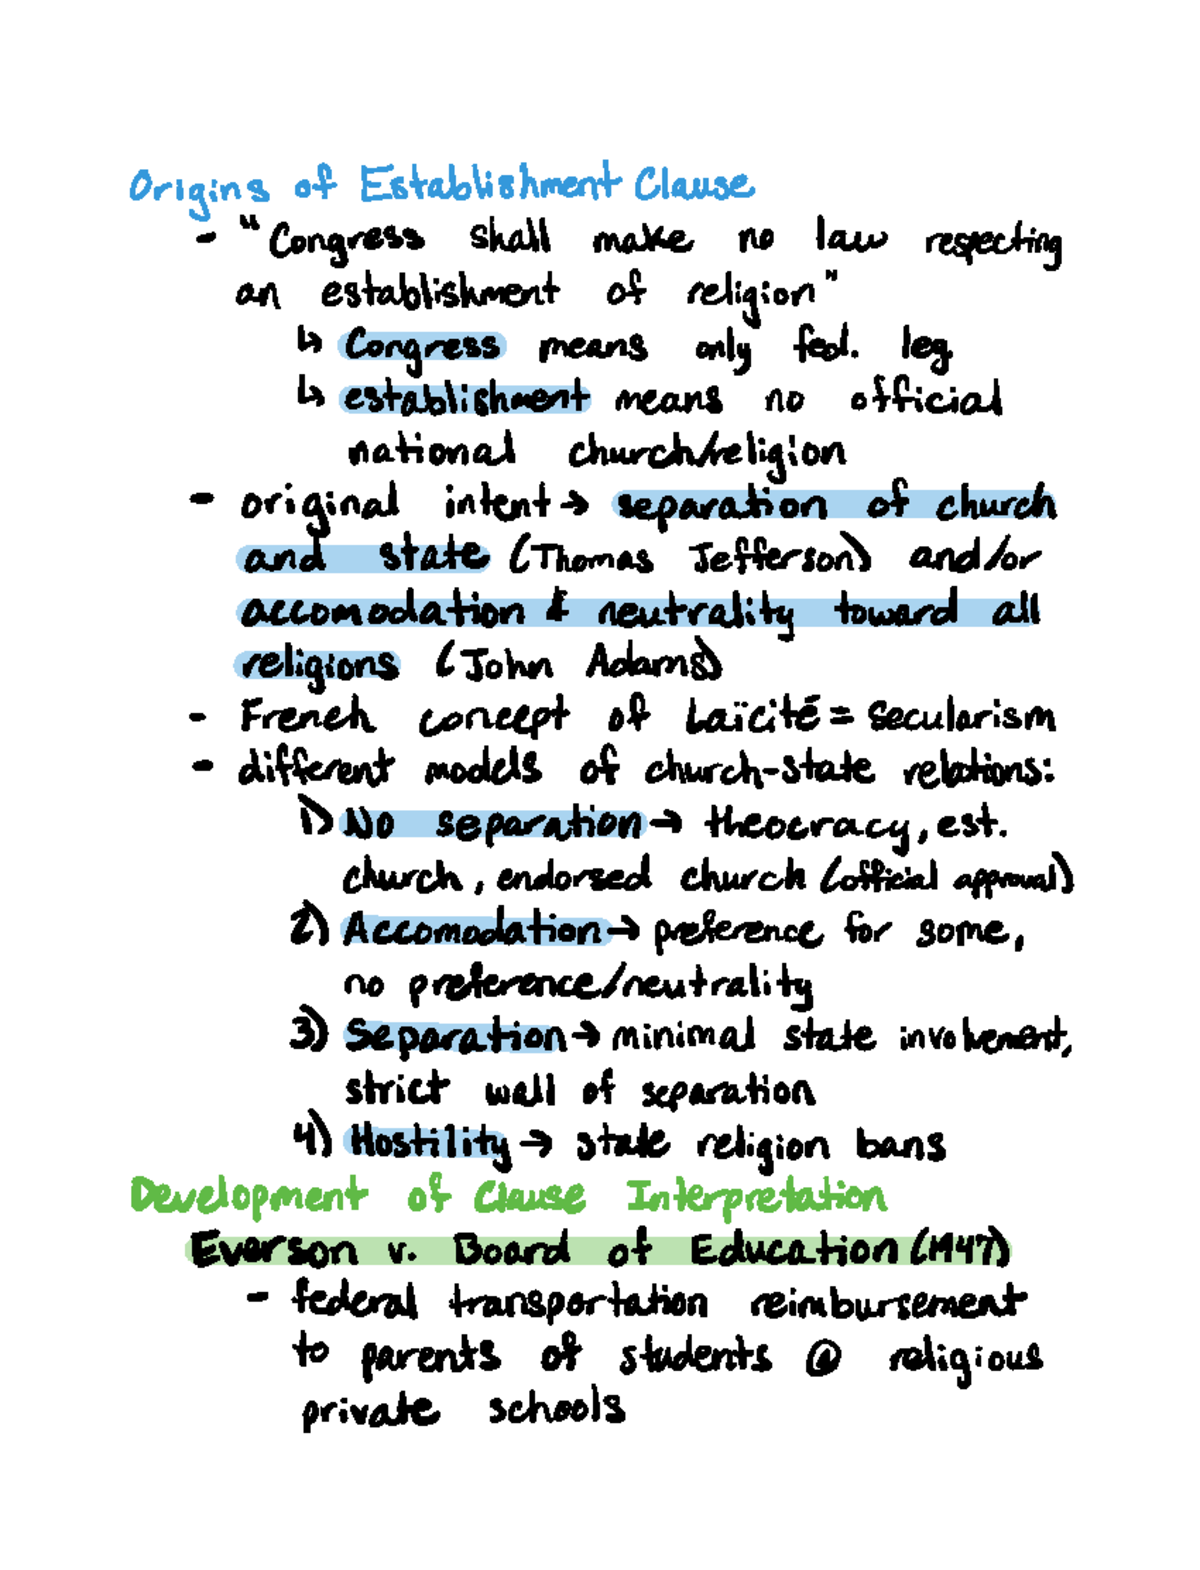 Origins of Establishment Clause
- "Congress shall make no law respecting
an establishment of religion"
↳ Congress means only fed. leg.
↳ establishment means no official
national church/religion
- original intent → separation of church
and state (Thomas Jefferson) and/or
accomodation & neutrality toward all
religions (John Adams)
- French concept of Laïcité = Secularism
- different models of church-state relations:
1) No separation → theocracy, est.
church, endorsed church (official approval)
2) Accomodation → preference for some,
no preference/neutrality
3) Separation → minimal state involvement,
strict wall of separation
4) Hostility → state religion bans
Development of Clause Interpretation
Everson v. Board of Education (1947)
- federal transportation reimbursement
to parents of students @ religious
private schools